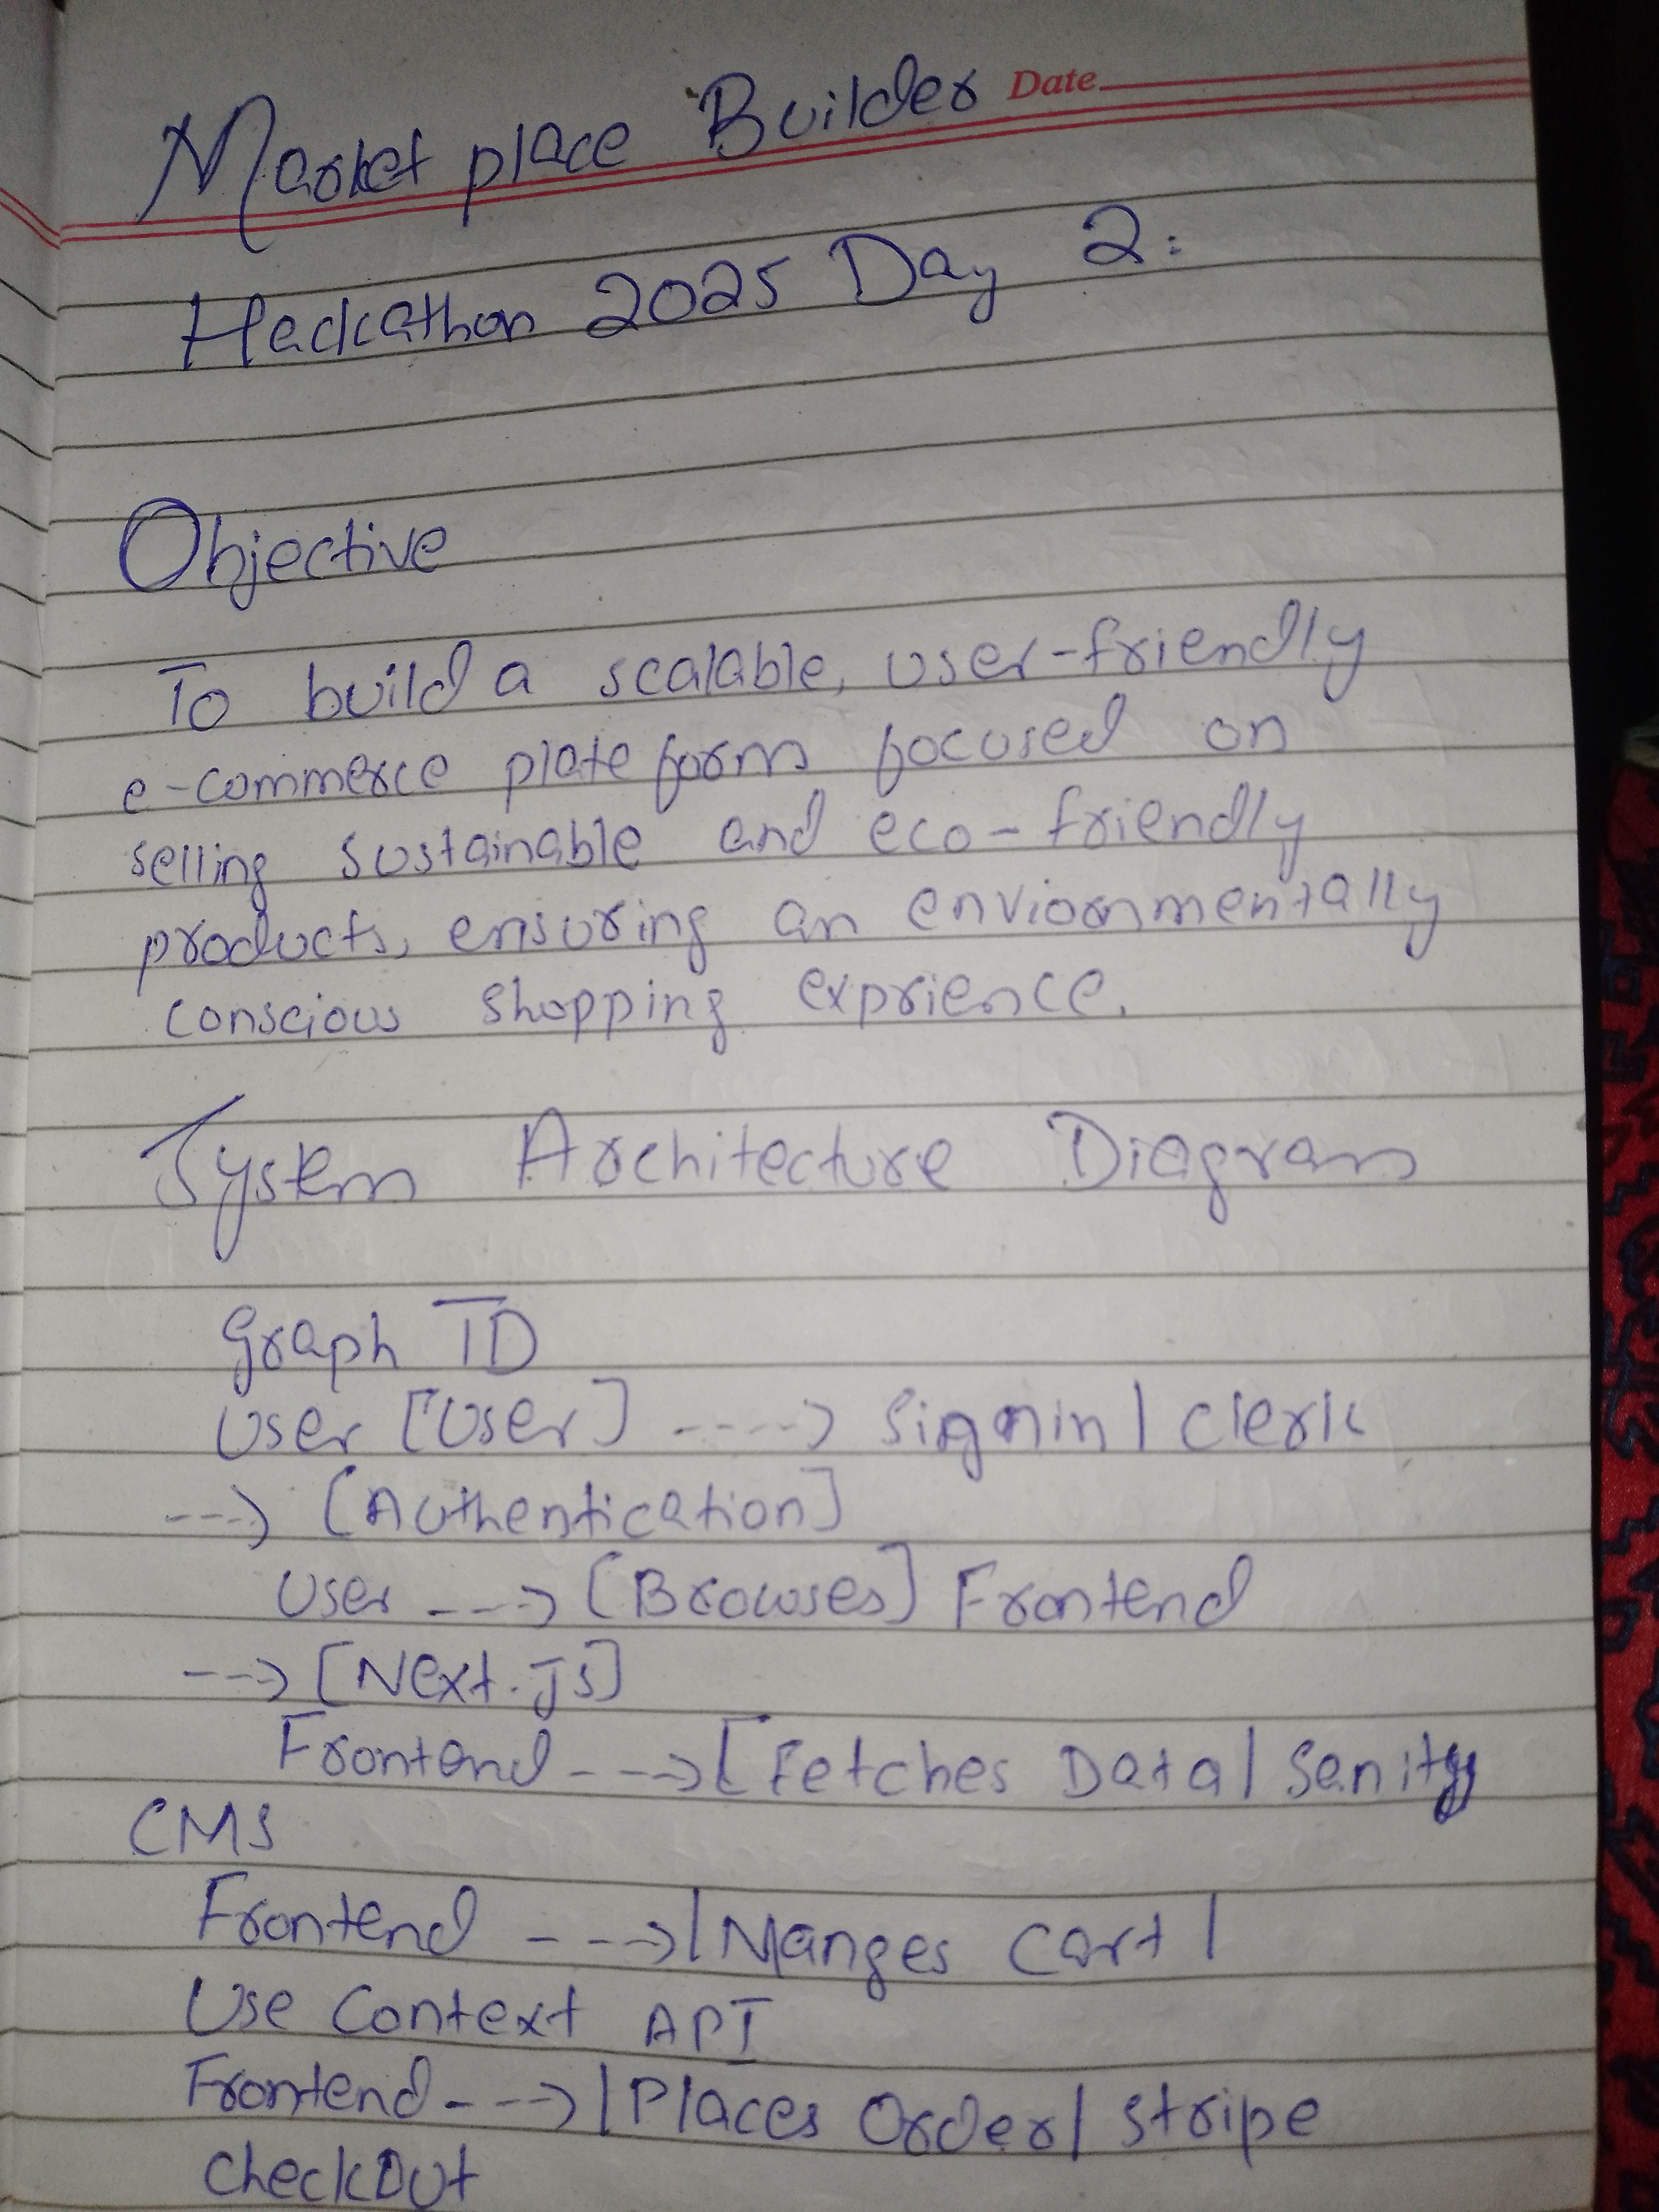 Market place Builder Date
Hackathon 2025 Day 2:
Objective
To build a scalable, user-friendly
e-commerce plateform focused on
selling sustainable and eco-friendly
products, ensuring an enviornmentally
conscious shopping exprience.
System Architecture Diagram
graph TD
User [User] ----> Signin | Clerk
---> [Authentication]
User ---> [Browses] Frontend
---> [Next.js]
Frontend ---> [Fetches Data | Sanity
CMS
Frontend ---> | Manges Cart |
Use Context API
Frontend ---> | Places Order | Stripe
CheckOut